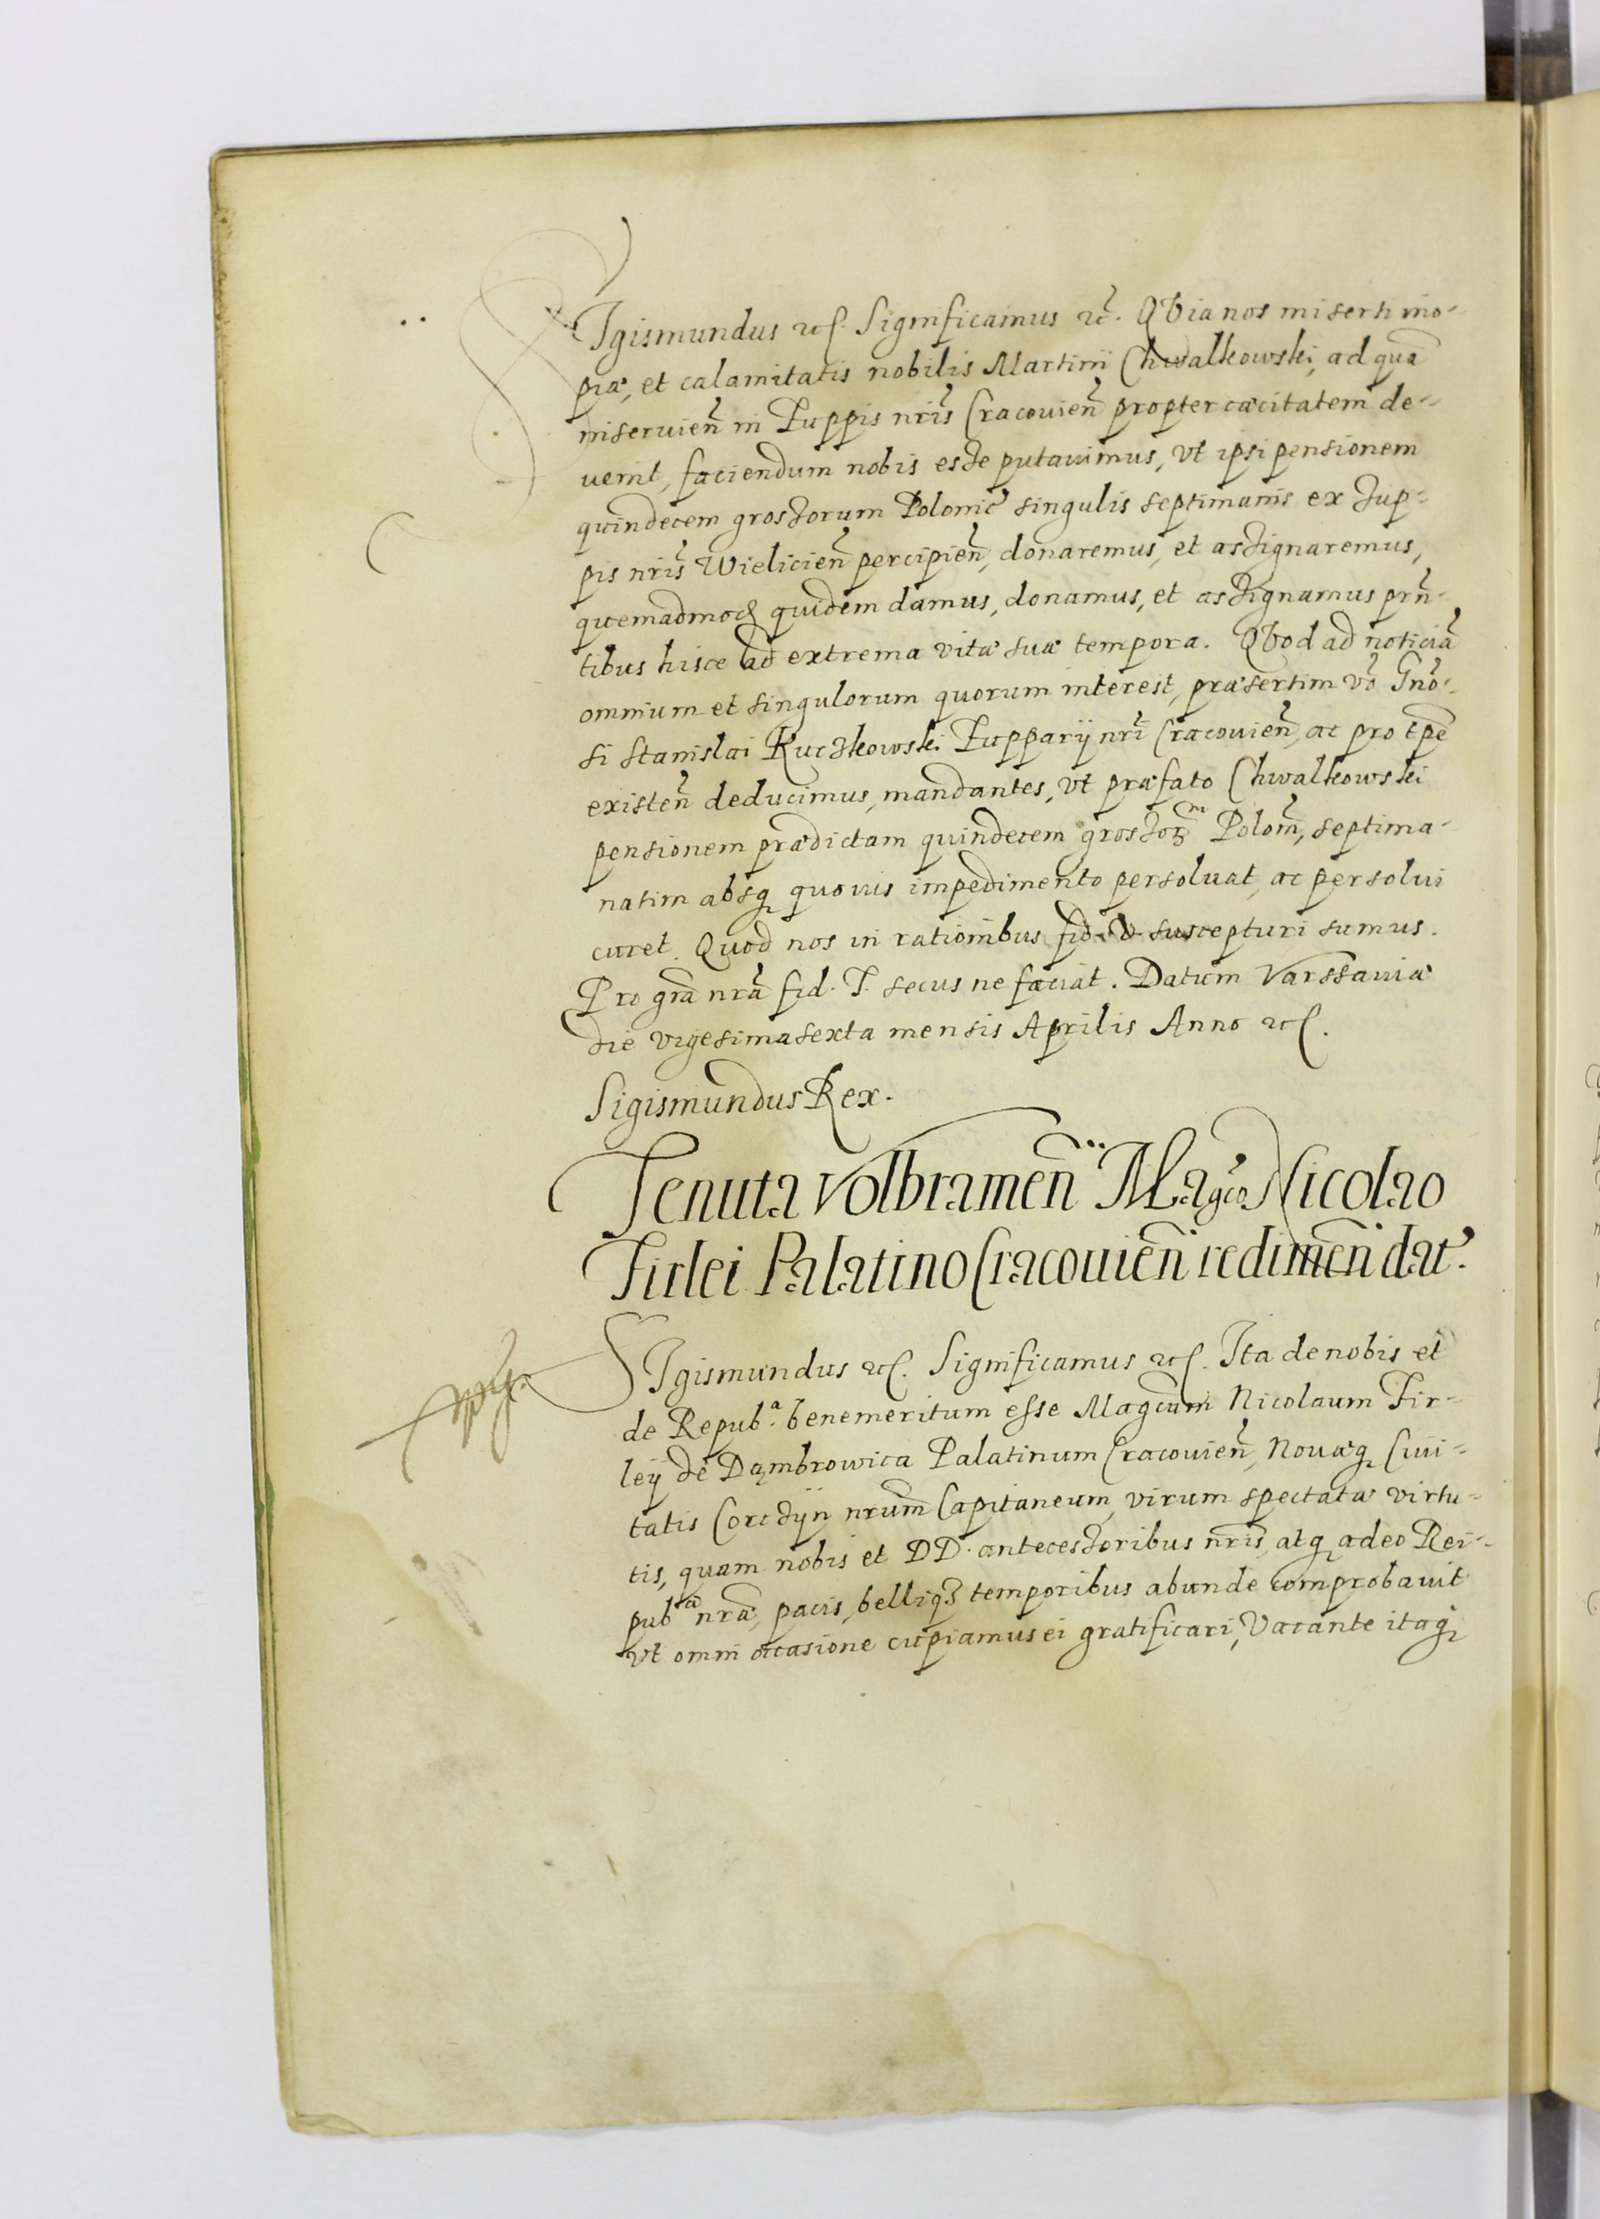 SIgismundus etc. Significamus etc. QVia nos miserti ino-
piæ, et calamitatis nobilis Martini Chwalkowski, ad quā
inseruieñ in Zuppis nr̃is Cracouieñ propter cæcitatem de-
uenit, faciendum nobis esse putauimus, vt ipsi pensionem
quindecem grossorum Polonic̃ singulis septimanis ex Zup-
pis nr̃is Wielicieñ percipieñ, donaremus, et assignaremus,
quemadmod quidem damus, donamus, et assignamus pr̃n-
tibus hisce ad extrema vitæ suæ tempora. QVod ad noticiā
omnium et singulorum quorum interest, præsertim vō Gño-
si Stanislai Kuczkowski Zupparij nr̃i Cracouieñ, ac pro tp̃e
existeñ deducimus, mandantes, vt præfato Chwalkowski
pensionem prædictam quindecem grossorᵐ Poloñ, septima-
natim absq quouis impedimento persoluat, ac persolui
curet. Quod nos in rationibus fid. V suscepturi sumus.
Pro gr̃a nr̃a fid. T. secus ne faciat. Datum Varssauiæ
die vigesima sexta mensis Aprilis Anno etc.
Sigismundus Rex.
Tenuta Volbrameñ Magco Nicolao
Firlei Palatino Cracouieñ redimeñ dat̃.
SIgismundus etc. Significamus etc. Ita de nobis et
de Repub.ᵃ benemeritum esse Magcum Nicolaum Fir-
leij de Dąmbrowica Palatinum Cracouieñ, Nouæq Ciui-
tatis Corczÿn nr̃um Capitaneum, virum spectatæ virtu-
tis, quam nobis et DD. antecessoribus nr̃is, atq adeo Rei-
pubᶜᵃ nr̃æ, pacis, belliq3 temporibus abunde comprobauit
vt omni occasione cupiamus ei gratificari, Vacante itaq